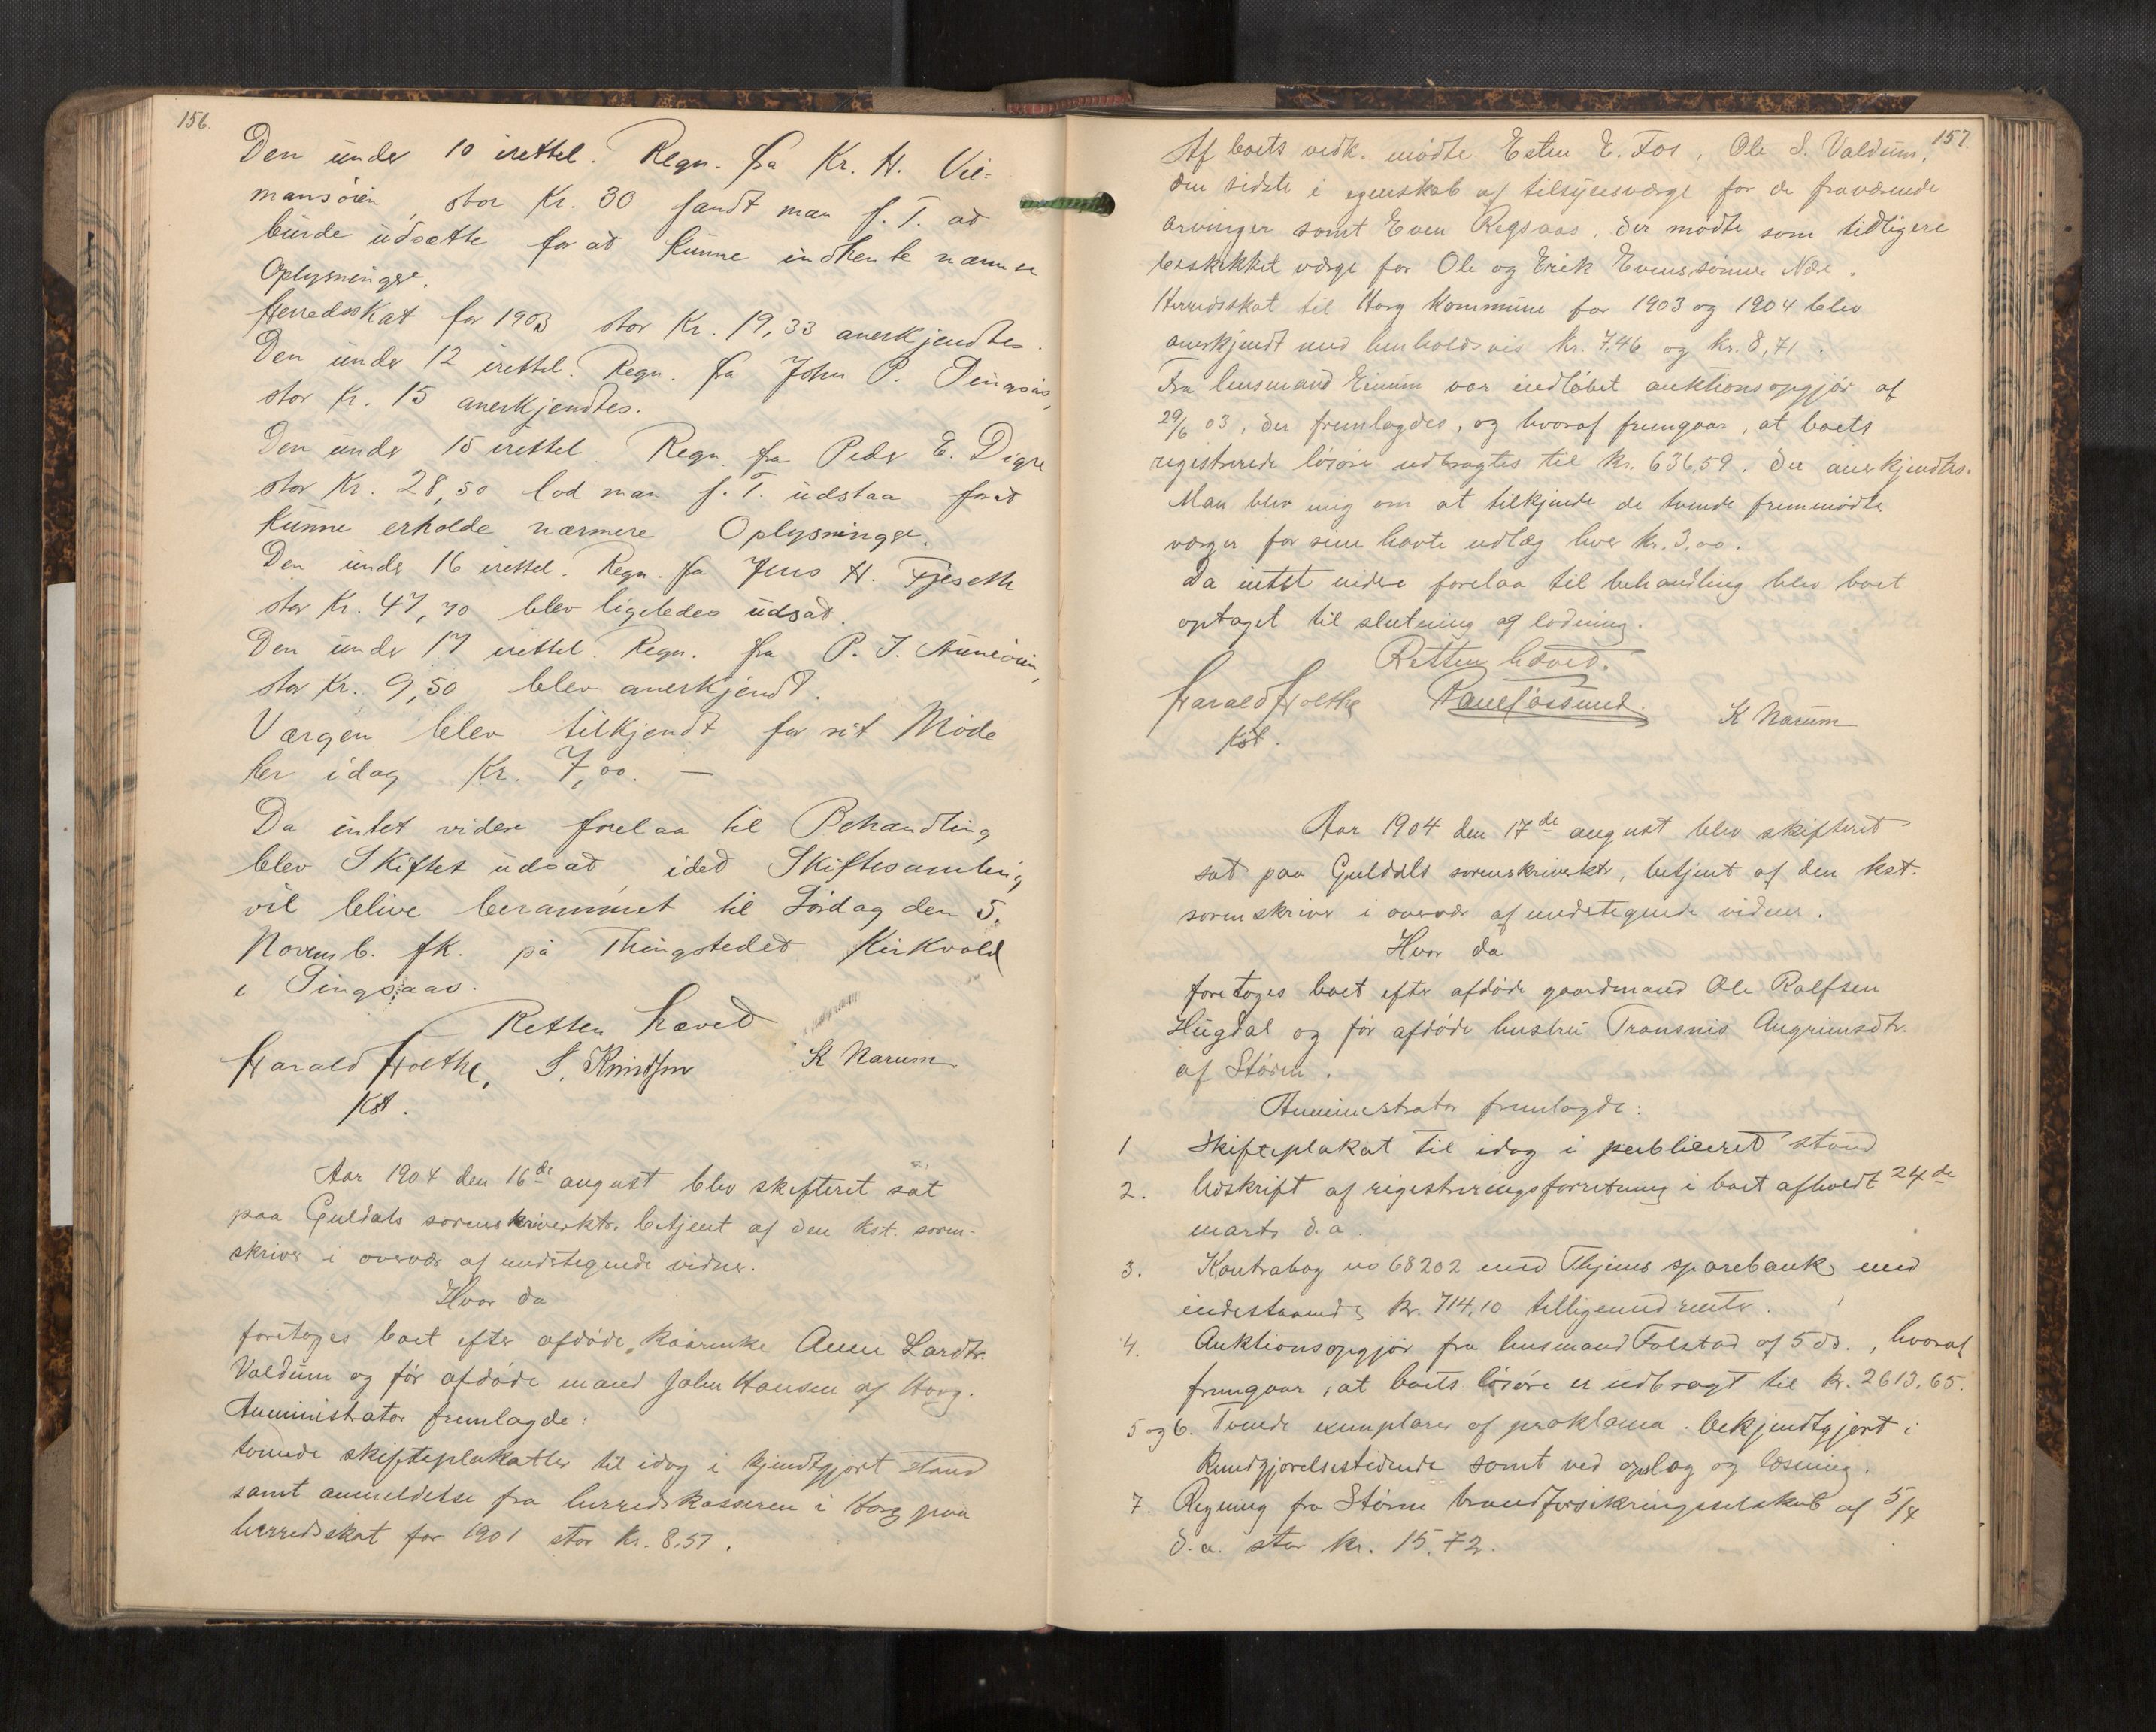 156.
Den under 10 irettel. Regn. fra Kr. H. Vil=
mansöien, stor Kr. 30 fandt man f. T. at
burde udsætte for at kunne indhente nærmere
Oplysninger.
Herredsskat for 1903 stor Kr. 19,33 anerkjendtes.
Den under 12 irettel. Regn. fra John P. Singsås,
stor Kr. 15 anerkjendtes.
Den under 15 irettel. Regn. fra Peder E. Digre
stor Kr. 28,50 lod man f. T. udstaa forat
kunne erholde nærmere Oplysninger.
Den under 16 irettel. Regn. fra Jens H. Fjeseth
stor Kr. 47,70 blev ligeledes udsat.
Den under 17 irettel. Regn. fra P. J.
stor Kr. 9,50 blev anerkjendt.
Værgen blev tilkjendt for sit Møde
her idag Kr. 7,00. —
Da intet videre forelaa til Behandling
blev Skiftet udsat, idet Skiftesamling
vil blive berammet til Lördag den 5.
Novemb. fk. på Thingstedet Kirkvold
i Singsaas.
Retten hævet
Harald Holthe, S. Knudsen K Narum
Kst.
Aar 1904 den 16de august blev skifteret sat
paa Guldals sorenskriverktr. betjent af den kst. soren-
skriver i overvær af undertegnede vidner.
Hvor da
foretoges boet efter afdöde kaarenke Anne Larsdtr.
Valdum og för afdöde mand John Hansen af Horg.
Administrator fremlagde:
tvende skifteplakatter til idag i kjendtgjort stand
samt anmeldelse fra herredskassereren i Horg paa
herredsskat for 1901 stor kr. 8.57.
157.
Af boets vedk. mödte Esten E. Fos, Ole S. Valdum,
den sidste i egenskab af tilsynsværge for de fraværende
arvinger samt Even Regsaas, der mödte som tidligere
beskikket værge for Ole og Erik Evenssönner
Herredsskat til Horg kommune for 1903 og 1904 blev
anerkjendt med henholdsvis kr. 7,46 og kr. 8,71.
Fra lensmand Einum var indløbet auktionsopgjör af
29/6 03, der fremlagdes, og hvoraf fremgaar, at boets
registrerede lösöre udbragtes til kr. 636,59. der anerkjendtes.
Man blev enig om at tilkjende de tvende fremmödte
værger for sine havte udlæg hver kr. 3,00.
Da intet videre forelaa til behandling blev boet
optaget til slutning og lodning.
Retten hævet.
Harald Holthe K Narum
Kst.
Aar 1904 den 17de august blev skifteret
sat paa Guldals sorenskriverktr, betjent af den kst.
sorenskriver i overvær af undertegnede vidner.
Hvor da
foretoges boet efter afdöde gaardmand Ole Rolfsen
Hugdal og för afdöde hustru Angrimsdtr.
af Stören.
Administrator fremlagde:
1 Skifteplakat til idag i publiceret stand
2. Udskrift af registreringsforretning i boet afholdt 24de
marts d. a.
3. Kontrabog no 68202 med Thjems sparebank med
indestaaende kr. 714,10 tilligemed renter.
4. Auktionsopgjör fra lensmand Folstad af 5 ds., hvoraf
fremgaar, at boets lösöre er udbragt til kr. 2613,65.
5 og 6. Tvende exemplarer af proklama bekjendtgjort i
Kundgjørelsestidende samt ved opslag og læsning.
7. Regning fra Stören brandforsikringsselskab af 5/4
d. a. stor kr. 15,72.